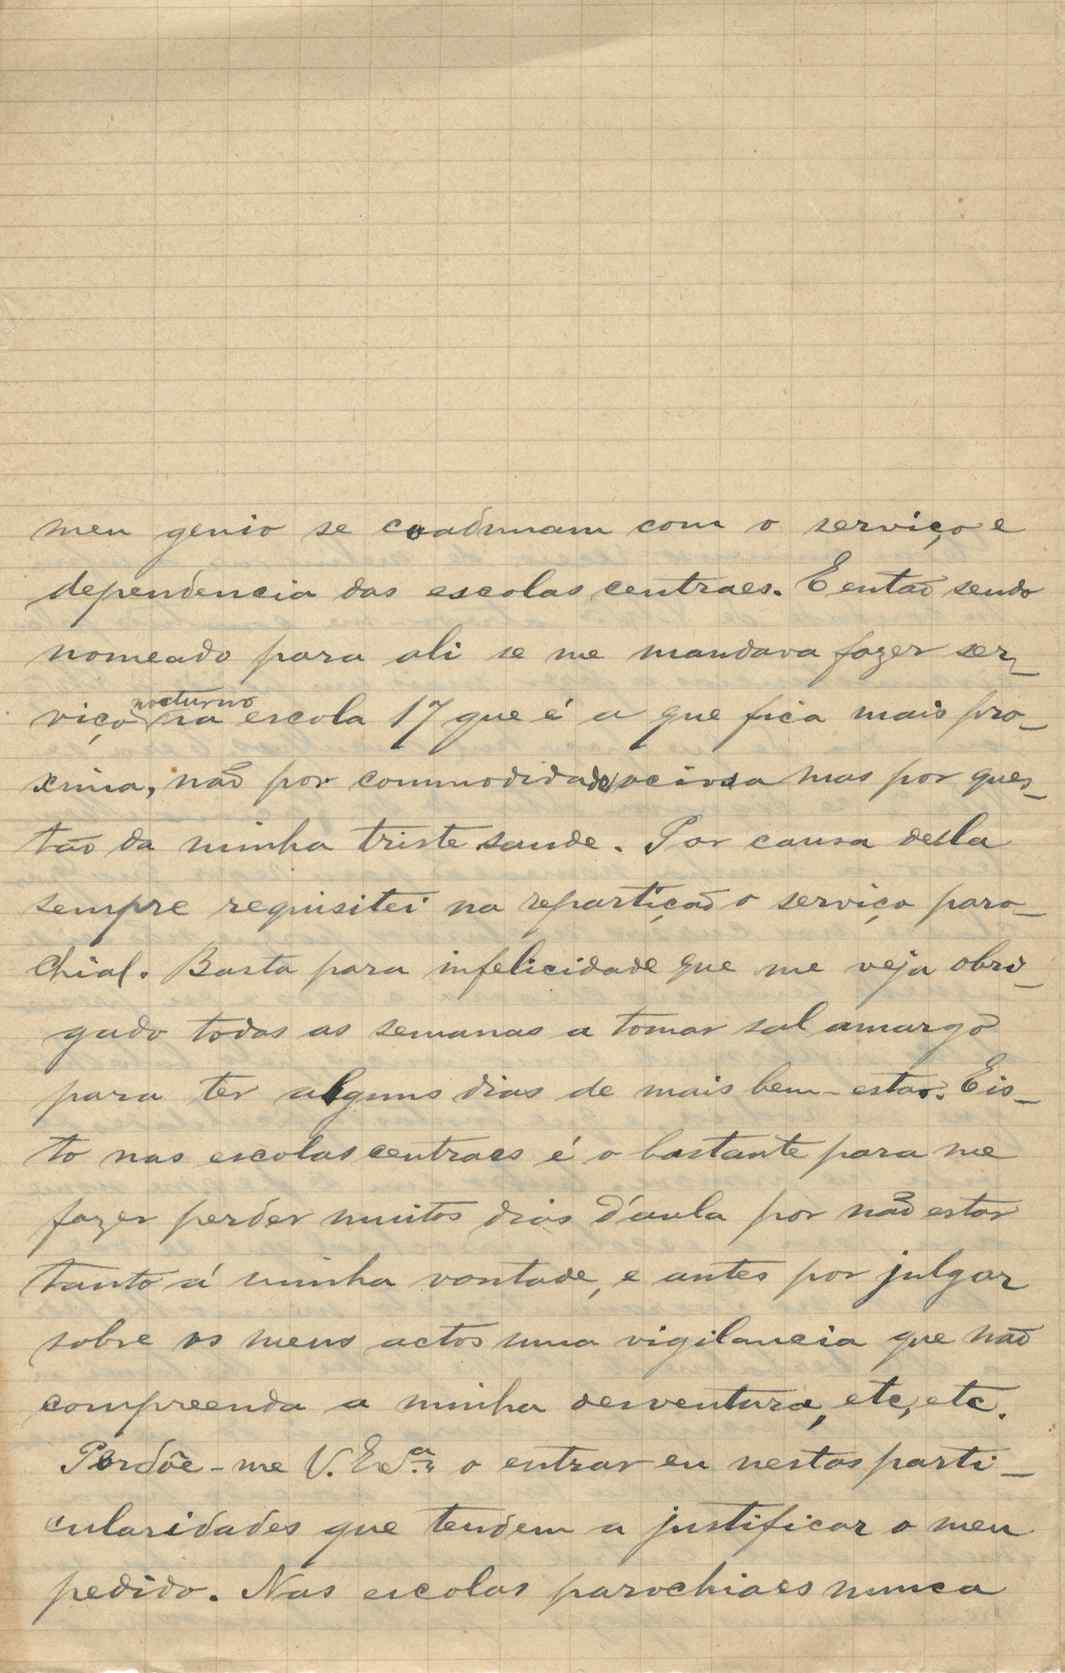 meu genio se coadunam com o serviço e
dependencia das escolas centraes. E então sendo
nomeado para ali se me mandava fazer ser-
viço nocturno na escola 17 que é a que fica mais pro-
xima, não por commodidade ociosa mas por ques-
tão da minha triste saude. Por causa desta
sempre requisitei na repartição o serviço paro-
chial. Basta para infelicidade que me veja obri-
gado todas as semanas a tomar sal amargo
para ter alguns dias de mais bem-estar. E is-
to nas escolas centraes é o bastante para me
fazer perder muitos dias d'aula por não estar
tanto á minha vontade, e antes por julgar
sobre os meus actos uma vigilancia que não
compreenda a minha desventura, etc, etc.
Perdôe-me V. Ex.ª o entrar eu nestas parti-
cularidades que tendem a justificar o meu
pedido. Nas escolas parochiaes nunca